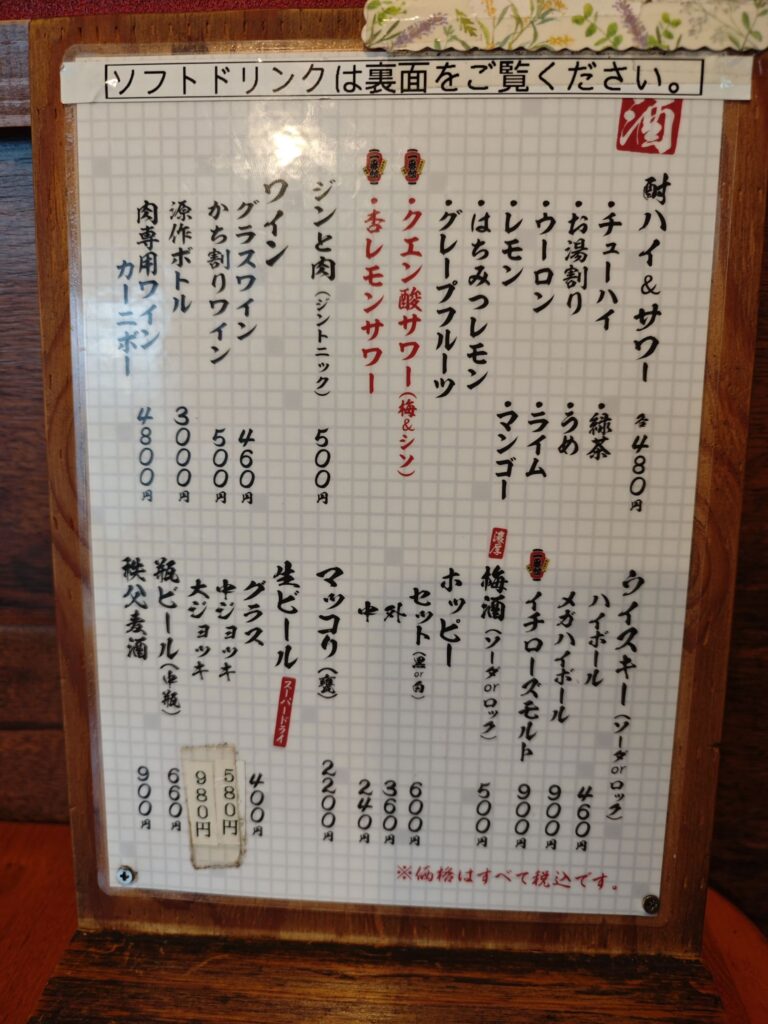 ソフトドリンクは裏面をご覧ください。
酒
酎ハイ&サワー 各480円
・チューハイ
・お湯割り
・ウーロン
・レモン
・はちみつレモン
・グレープフルーツ
・緑茶
・うめ
・ライム
・マンゴー
・クエン酸サワー(梅&シソ)
・杏レモンサワー
ジンと肉(ジントニック) 500円
ワイン
グラスワイン 460円
かち割りワイン 500円
源作ボトル 3000円
肉専用ワイン
カーニボー 4800円
ウイスキー(ソーダorロック)
ハイボール 460円
メガハイボール 900円
イチローズモルト 900円
濃厚
梅酒(ソーダorロック) 500円
ホッピー
セット(黒or白) 600円
外 360円
中 240円
マッコリ(甕) 2200円
生ビール スーパードライ
グラス 400円
中ジョッキ 580円
大ジョッキ 980円
瓶ビール(中瓶) 660円
秩父麦酒 900円
※価格はすべて税込です。